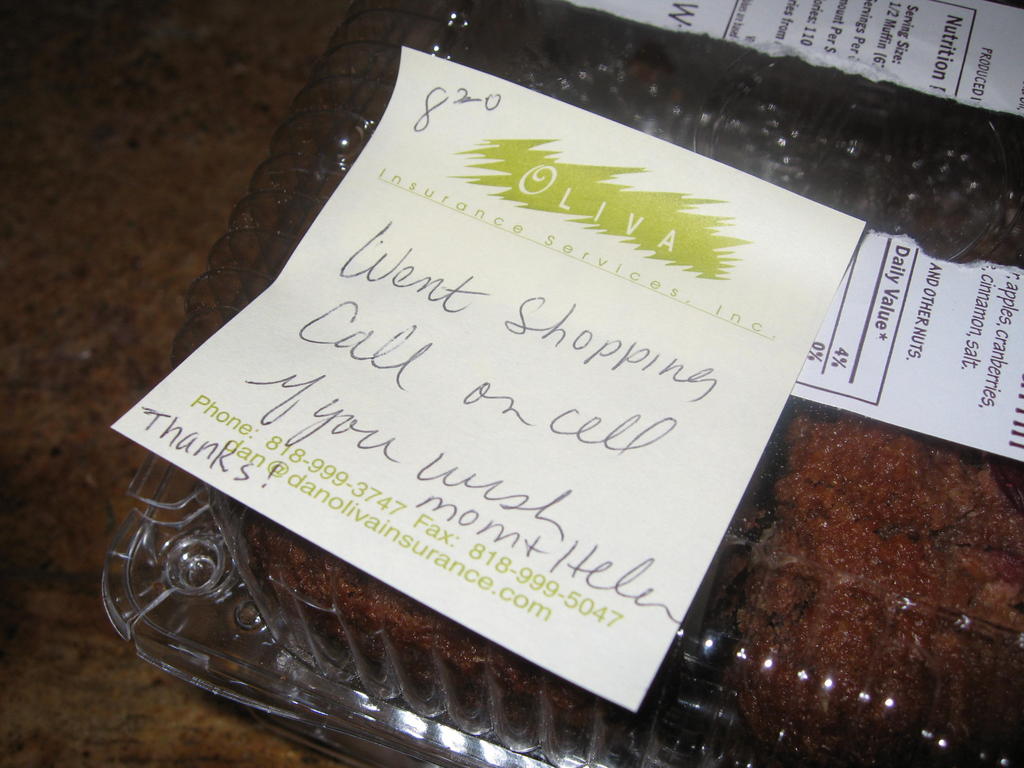 8 20
OLIVA
Insurance Services, Inc.
Went Shopping
Call on cell
if you wish
mom + Helen
Thanks!
Phone: 818-999-3747 Fax: 818-999-5047
dan@danolivainsurance.com
PRODUCED
Nutrition
Serving Size:
1/2 Muffin (6
W
110
, apples, cranberries,
, cinnamon, salt.
AND OTHER NUTS.
Daily Value*
4%
0%